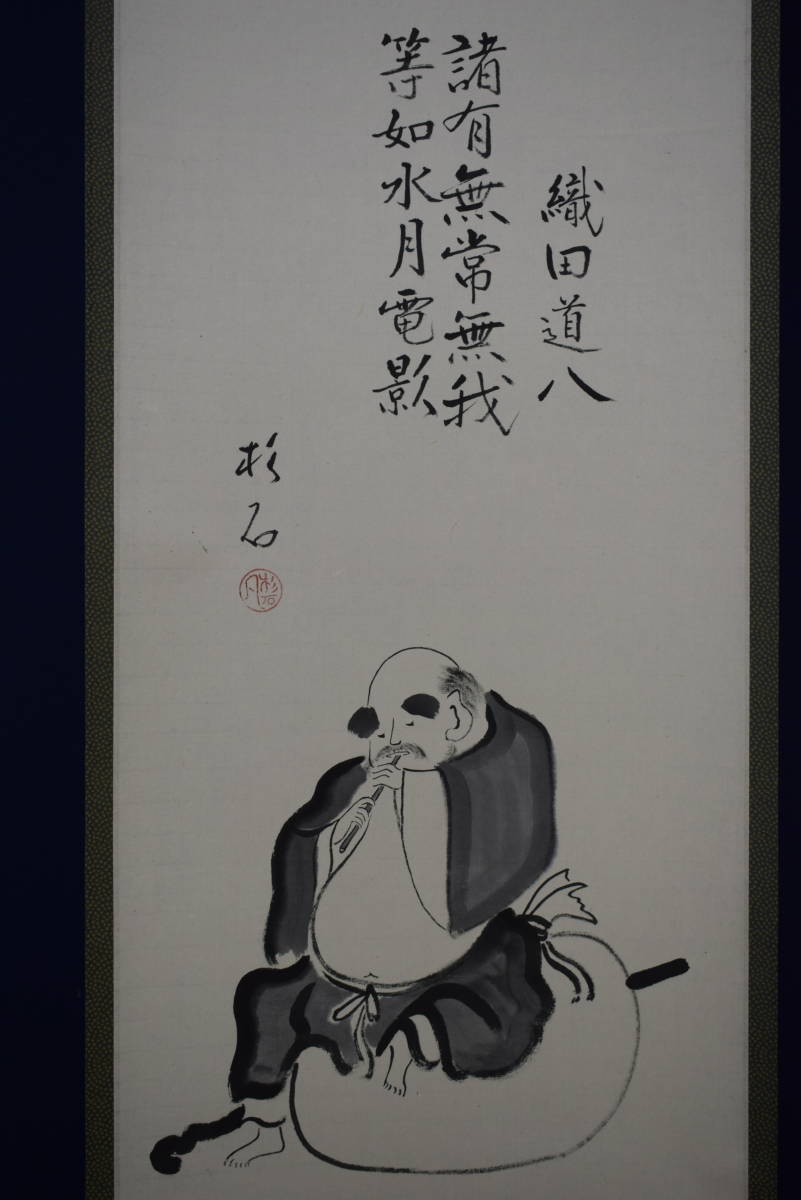 織田道八
諸有無常無我
等如水月電影
杉石